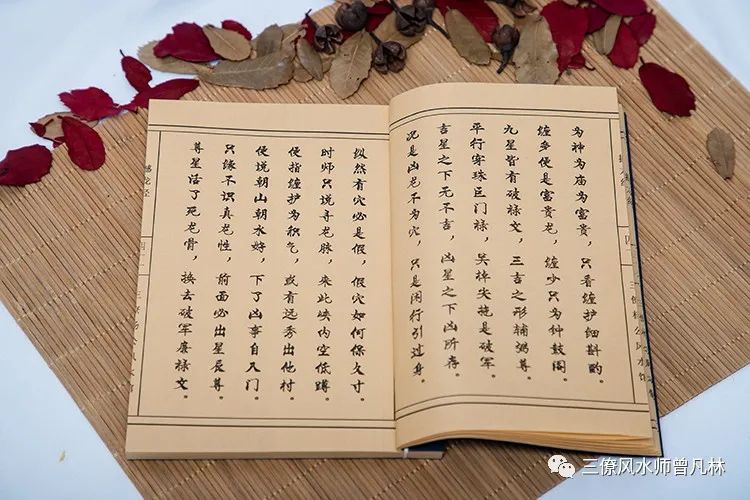 为神为庙为富贵，只看缠护细斟酌。
缠多便是富贵龙，缠少只为钟鼓阁。
九星皆有破禄文，三吉之形辅弼尊。
平行穿珠巨门禄，关棹尖拖是破军。
吉星之下无不吉，凶星之下凶所存。
况是凶龙不为穴，只是闲行引过身。
纵然有穴必是假，假穴如何保久寸。
时师只说寻龙脉，来此峡内空低蹲。
便指缠护为积气，或有远秀出他村。
便说朝山朝水好，下了凶事自入门。
只缘不识真龙性，前面必出星辰尊。
尊星活了死龙骨，换去破军廉禄文。
撼龙经
三僚风水师曾凡林